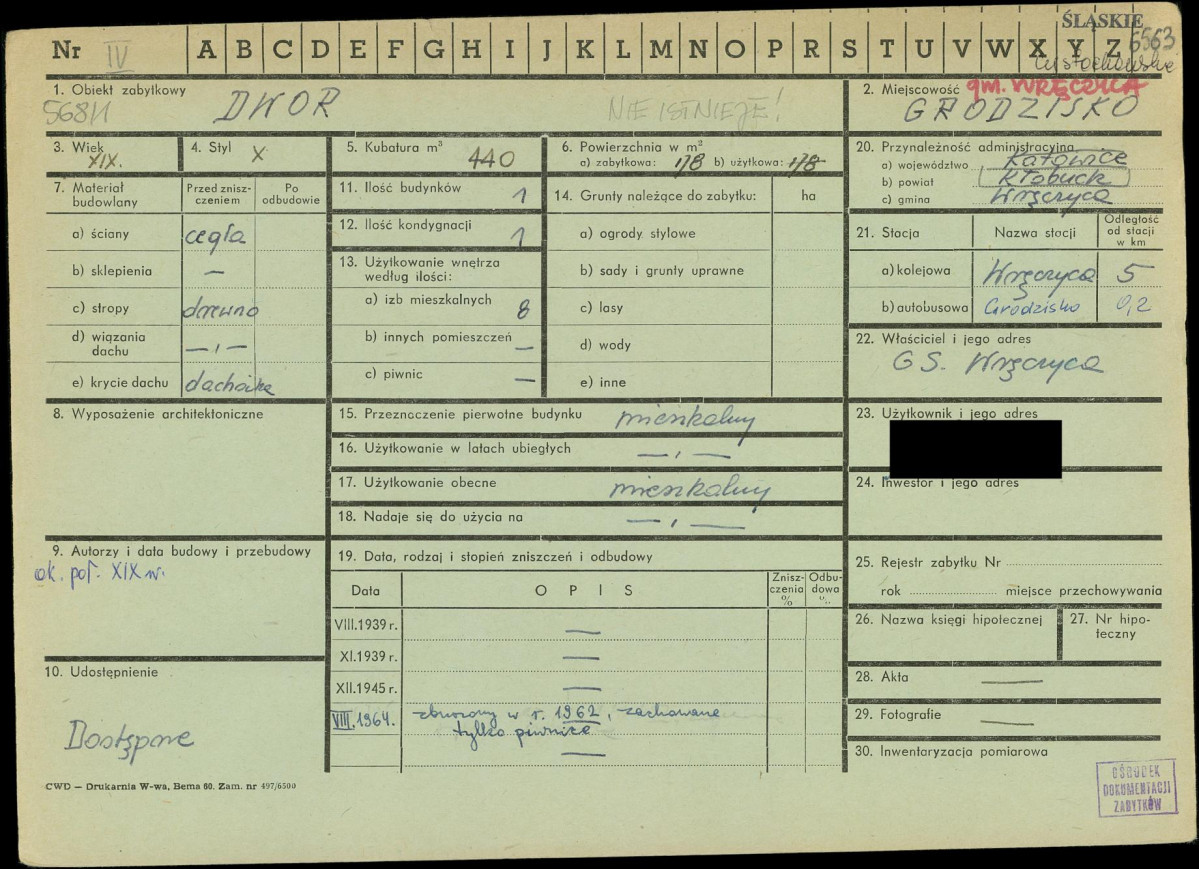 ŚLĄSKIE
6563
Nr IV A B C D E F G H I J K L M N O P R S T U V W X Y Z
1. Obiekt zabytkowy
5681/1
DWÓR
NIE ISTNIEJE!
2. Miejscowość gm. WRĘCZYCA
GRODZISKO
3. Wiek
XIX.
4. Styl
X
5. Kubatura m³
440
6. Powierzchnia w m²
a) zabytkowa: 178 b) użytkowa: 178
7. Materiał budowlany
Przed zniszczeniem
Po odbudowie
a) ściany cegła
b) sklepienia —
c) stropy drewno
d) wiązania dachu —„—
e) krycie dachu dachówka
8. Wyposażenie architektoniczne
9. Autorzy i data budowy i przebudowy
ok. poł. XIX w.
10. Udostępnienie
Dostępne
11. Ilość budynków 1
12. Ilość kondygnacji 1
13. Użytkowanie wnętrza według ilości:
a) izb mieszkalnych 8
b) innych pomieszczeń —
c) piwnic —
14. Grunty należące do zabytku: ha
a) ogrody stylowe
b) sady i grunty uprawne
c) lasy
d) wody
e) inne
15. Przeznaczenie pierwotne budynku mieszkalny
16. Użytkowanie w latach ubiegłych —„—
17. Użytkowanie obecne mieszkalny
18. Nadaje się do użycia na —„—
19. Data, rodzaj i stopień zniszczeń i odbudowy
Data
OPIS
Zniszczenia %
Odbudowa %
VIII.1939 r. —
XI.1939 r. —
XII.1945 r. —
VIII.1964. zburzony w r. 1962, zachowane
tylko piwnice
—
20. Przynależność administracyjna
a) województwo Katowice
b) powiat Kłobuck
c) gmina Wręczyca
21. Stacja
Nazwa stacji
Odległość od stacji w km
a) kolejowa Wręczyca 5
b) autobusowa Grodzisko 0,2
22. Właściciel i jego adres
GS. Wręczyca
23. Użytkownik i jego adres
24. Inwestor i jego adres
25. Rejestr zabytku Nr
rok miejsce przechowywania
26. Nazwa księgi hipotecznej
27. Nr hipoteczny
28. Akta —
29. Fotografie —
30. Inwentaryzacja pomiarowa
OŚRODEK
DOKUMENTACJI
ZABYTKÓW
CWD — Drukarnia W-wa, Bema 60. Zam. nr 497/6500